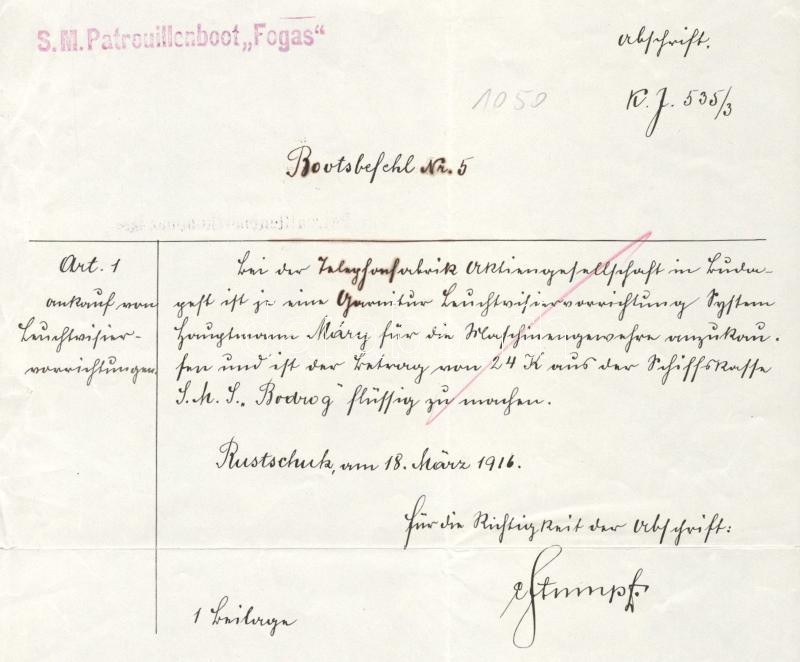 S.M. Patrouillenboot „Fogas“
Abschrift.
1050
K. J. 535/3
Bootsbefehl Nr. 5
Art. 1
Ankauf von
Leuchtvisier-
vorrichtungen.
Bei der Telephonfabrik Aktiengesellschaft in Buda-
pest ist je eine Garnitur Leuchtvisiervorrichtung System
Hauptmann März für die Maschinengewehre anzukau-
fen und ist der Betrag von 24 K aus der Schiffskasse
S. M. S. „Bodrog“ flüssig zu machen.
Rustschuk, am 18. März 1916.
Für die Richtigkeit der Abschrift:
Stumpf
1 Beilage